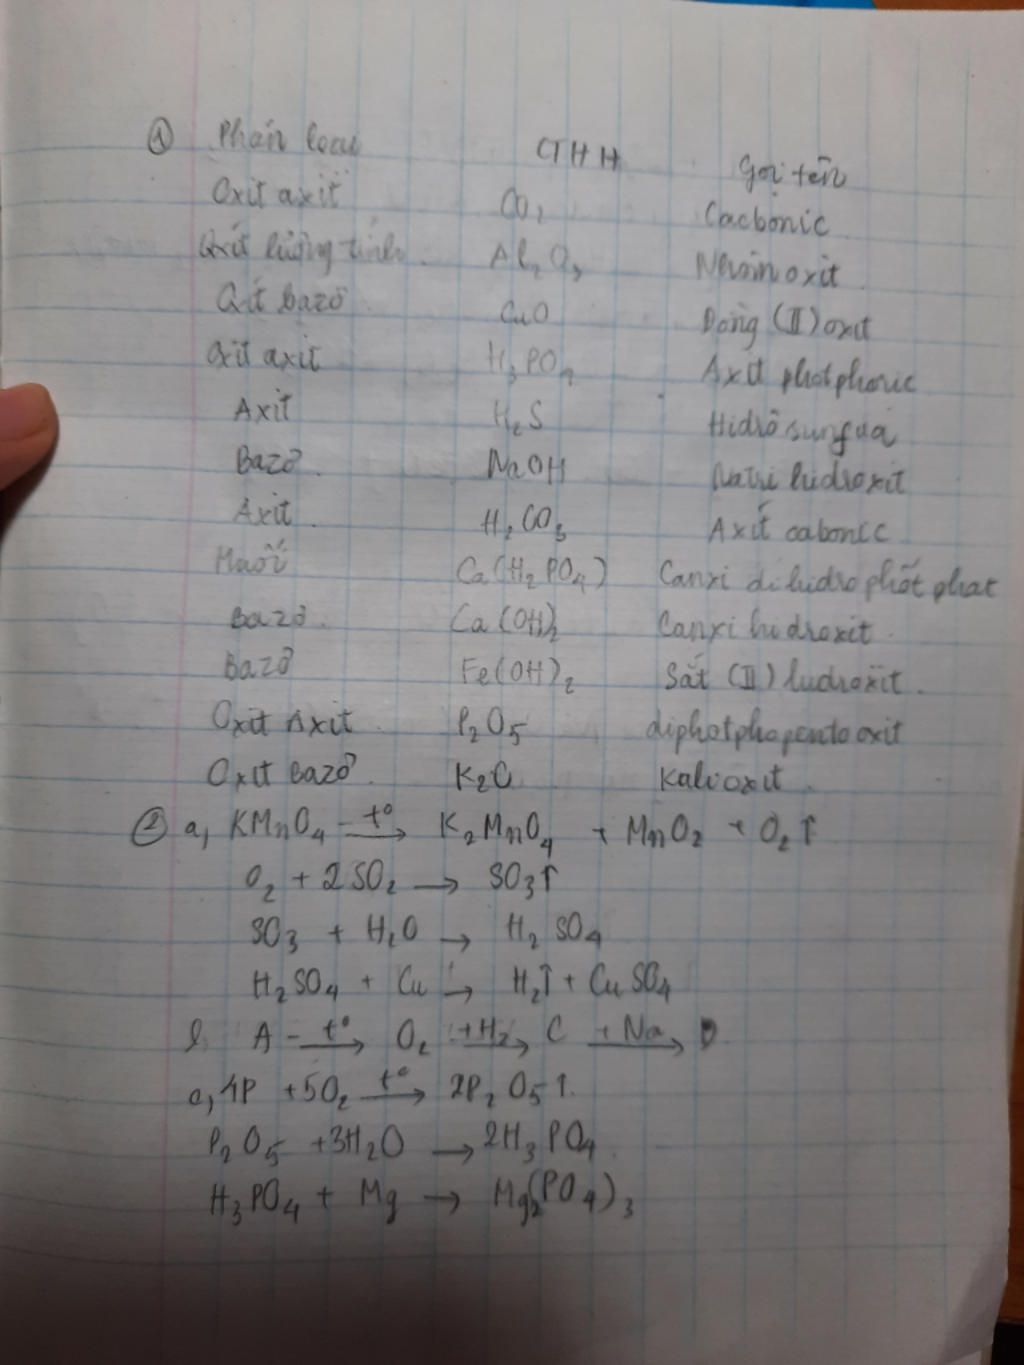 ① Phân loại CTHH Gọi tên
Oxit axit CO2 Cacbonic
Oxit lưỡng tính. Al2O3 Nhôm oxit
Oxit bazơ CuO Đồng (II) oxit
Oxit axit H3PO4 Axit photphoric
Axit H2S Hidrô sunfua
Bazơ. NaOH Natri hidroxit
Axit. H2CO3 Axit cabonic
Muối Ca(H2PO4) Canxi đihidro phốt phat
Bazơ. Ca(OH)2 Canxi hidroxit.
Bazơ Fe(OH)2 Sắt (II) hidroxit.
Oxit Axit. P2O5 diphotphopentooxit
Oxit bazơ. K2O Kali oxit
② a, KMnO4 —t°→ K2MnO4 + MnO2 + O2↑
O2 + 2SO2 → SO3↑
SO3 + H2O → H2SO4
H2SO4 + Cu → H2↑ + CuSO4
A —t°→ O2 +H2→ C +Na→ D
4P + 5O2 —t°→ 2P2O5↑.
P2O5 + 3H2O → 2H3PO4.
H3PO4 + Mg → Mg2(PO4)3